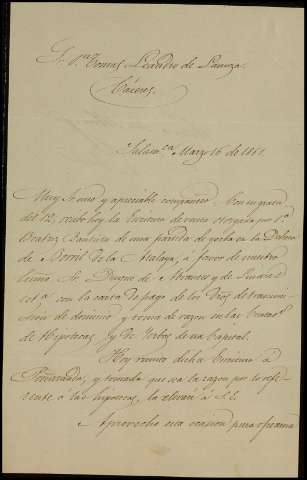 S. Dn. Tomas Leandro de
Cáceres.
Salamca. Marzo 16 de 1861.
Muy Sr. mio y apreciable compañero: Con su grata
del 12, recibo hoy la Escritura de venta otorgada por Da.
Beatriz de una partida de yerba en la Dehesa
de Borril de la Atalaya, á favor de nuestro
Sr. Duque de Abrantes y de Linares
con la carta de pago de los Dros de transmi-
sion de dominio y toma de razon en las
de Hipotecas y de Yerbas de esa Capital.
Hoy remito dicha Escritura á
Granadilla, y tomada que sea la razon por lo refe-
rente á las hipotecas, la elevaré á S. E.
Aprovecho esta ocasion para ofrecerme